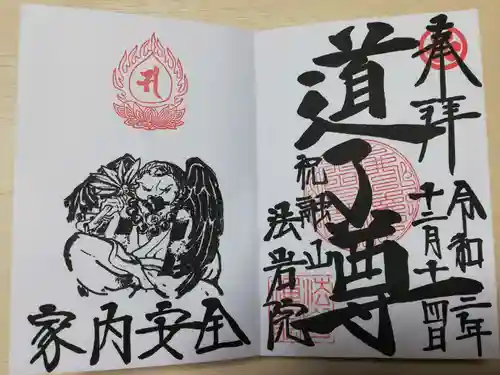 奉拝
道了尊
祝融山
法岩院
令和二年
十二月十四日
家内安全